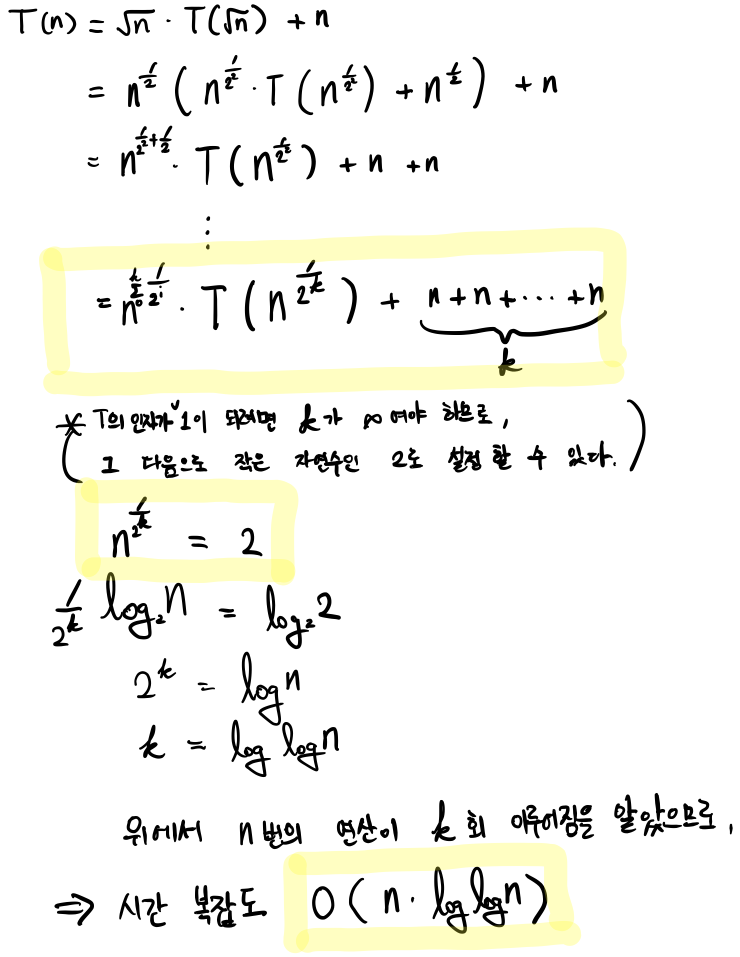 T(n) = √n · T(√n) + n
= n^(1/2) ( n^(1/2²) · T ( n^(1/2²) ) + n^(1/2) ) + n
= n^(1/2²+1/2) · T ( n^(1/2²) ) + n + n
⋮
= n^(Σ_0^k 1/2^i) · T ( n^(1/2^k) ) + n + n + ··· + n
k
* T의 인자가 ∨ 1이 되려면 k가 ∞ 여야 하므로,
( 그 다음으로 작은 자연수인 2로 설정 할 수 있다. )
n^(1/2^k) = 2
1/2^k log₂n = log₂2
2^k = log n
k = log log n
위에서 n번의 연산이 k회 이루어짐을 알았으므로,
⇒ 시간 복잡도 O ( n · log log n )